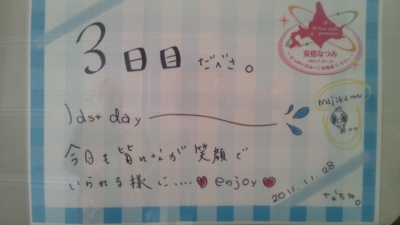 3日目 だべさ。
安倍なつみ
last day
今日も皆れなが 笑顔で
いられる様に.... ♥ enjoy ♥
2011.11.28
なちみ。